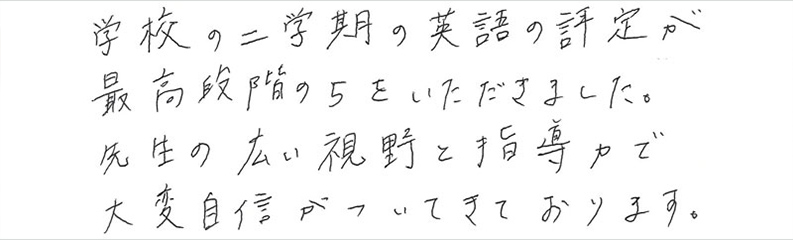 学校の二学期の英語の評定が
最高段階の5をいただきました。
先生の広い視野と指導力で
大変自信がついてきております。